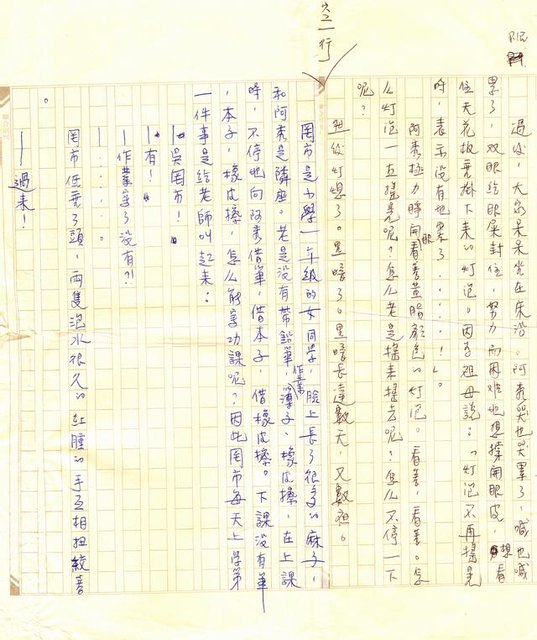 空一行
過後，大家呆呆坐在床沿。阿素哭也哭累了，喊也喊
累了，双眼給眼屎封住，努力而困难地想撐開眼皮，想看
住天花板垂掛下來的灯泡。因為祖母說：「灯泡不再搖晃
時，表示没有地震了……！」。
阿素極力睜開眼看着黃脂顏色的灯泡。看着，看着。怎
么灯泡一直搖晃呢？怎么老是搖來搖去呢？怎么不停一下
呢？
然後灯熄了。黑暗了。黑暗長達數天，又數夜。
罔市是小學一年級的女同學，臉上長了很多的麻子，
和阿素是隣座。老是没有带鉛筆，作業簿子、橡皮擦，在上課
時，不停地向阿素借筆，借本子，借橡皮擦。下課没有筆
，本子，橡皮擦，怎么能寫功課呢？因此罔市每天上學第
一件事是給老師叫起來：
—吳罔市！
—有！
—作業寫了没有？！
—……。
罔市低垂了頭，兩隻泡水很久的紅腫的手互相扭絞着
。
—過來！